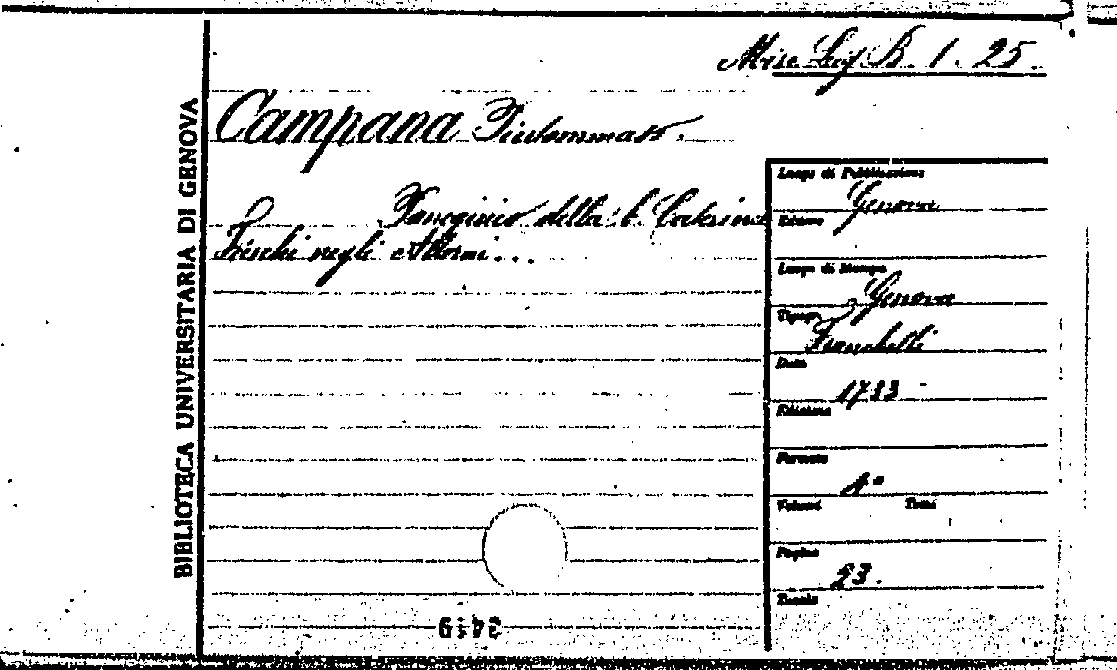 Misc. Lig. B. 1. 25.
Campana Piertommaso.
Panegirico della b. Caterina
Fieschi negli Adorni...
BIBLIOTECA UNIVERSITARIA DI GENOVA
Luogo di Pubblicazione
Genova
Editore
Luogo di Stampa
Genova
Tipogr.
Franchelli
Data
1733
Edizione
Formato
4°
Volumi Tomi
Pagine
23.
Tavole